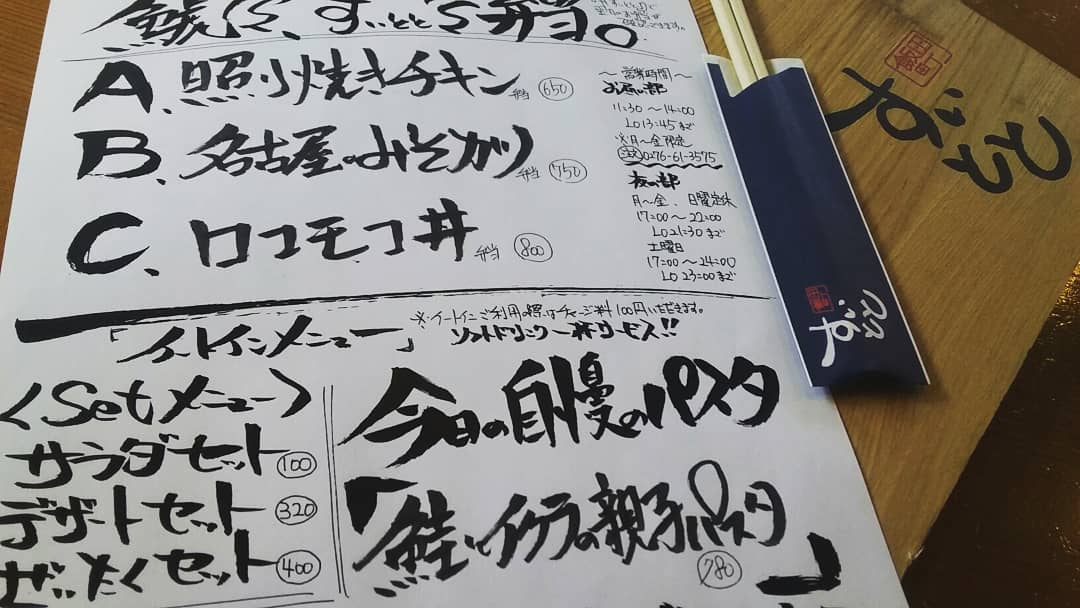 すいとと's 弁当。
A、照り焼きチキン弁当 650
B、名古屋のみそカツ弁当 750
C、ロコモコ丼弁当 800
〜営業時間〜
お昼の部
11:30〜14:00
LO13:45まで
※月〜金限定
☎0276-61-3575
夜の部
月〜金、日曜定休
17:00〜22:00
LO21:30まで
土曜日
17:00〜24:00
LO23:00まで
「イートインメニュー」
※イートインご利用の際はチャージ料100円いただきます。
ソフトドリンク一杯サービス!!
<Setメニュー>
サラダセット 100
デザートセット 320
ぜいたくセット 400
今日の自慢のパスタ
「鮭とイクラの親子パスタ」
780